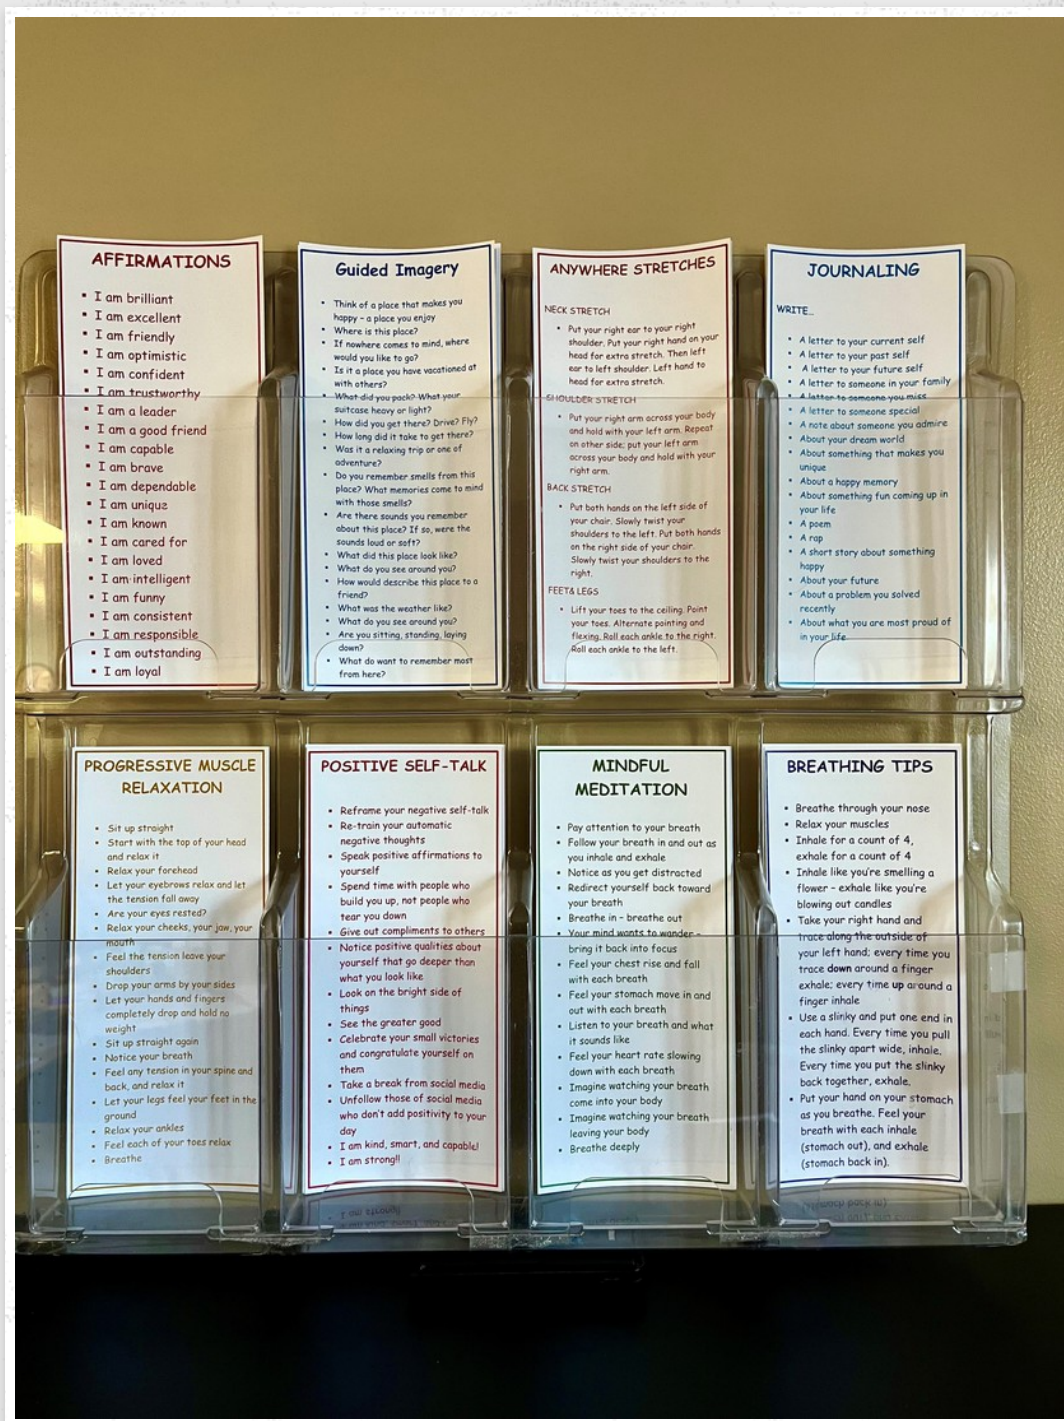 AFFIRMATIONS
I am brilliant
I am excellent
I am friendly
I am optimistic
I am confident
I am trustworthy
I am a leader
I am a good friend
I am capable
I am brave
I am dependable
I am unique
I am known
I am cared for
I am loved
I am intelligent
I am funny
I am consistent
I am responsible
I am outstanding
I am loyal
Guided Imagery
Think of a place that makes you
happy – a place you enjoy
Where is this place?
If nowhere comes to mind, where
would you like to go?
Is it a place you have vacationed at
with others?
What did you pack? What your
suitcase heavy or light?
How did you get there? Drive? Fly?
How long did it take to get there?
Was it a relaxing trip or one of
adventure?
Do you remember smells from this
place? What memories come to mind
with those smells?
Are there sounds you remember
about this place? If so, were the
sounds loud or soft?
What did this place look like?
What do you see around you?
How would describe this place to a
friend?
What was the weather like?
What do you see around you?
Are you sitting, standing, laying
down?
What do want to remember most
from here?
ANYWHERE STRETCHES
NECK STRETCH
Put your right ear to your right
shoulder. Put your right hand on your
head for extra stretch. Then left
ear to left shoulder. Left hand to
head for extra stretch.
SHOULDER STRETCH
Put your right arm across your body
and hold with your left arm. Repeat
on other side; put your left arm
across your body and hold with your
right arm.
BACK STRETCH
Put both hands on the left side of
your chair. Slowly twist your
shoulders to the left. Put both hands
on the right side of your chair.
Slowly twist your shoulders to the
right.
FEET& LEGS
Lift your toes to the ceiling. Point
your toes. Alternate pointing and
flexing. Roll each ankle to the right.
Roll each ankle to the left.
JOURNALING
WRITE...
A letter to your current self
A letter to your past self
A letter to your future self
A letter to someone in your family
A letter to someone you miss
A letter to someone special
A note about someone you admire
About your dream world
About something that makes you
unique
About a happy memory
About something fun coming up in
your life
A poem
A rap
A short story about something
happy
About your future
About a problem you solved
recently
About what you are most proud of
in your life
PROGRESSIVE MUSCLE
RELAXATION
Sit up straight
Start with the top of your head
and relax it
Relax your forehead
Let your eyebrows relax and let
the tension fall away
Are your eyes rested?
Relax your cheeks, your jaw, your
mouth
Feel the tension leave your
shoulders
Drop your arms by your sides
Let your hands and fingers
completely drop and hold no
weight
Sit up straight again
Notice your breath
Feel any tension in your spine and
back, and relax it
Let your legs feel your feet in the
ground
Relax your ankles
Feel each of your toes relax
Breathe
POSITIVE SELF-TALK
Reframe your negative self-talk
Re-train your automatic
negative thoughts
Speak positive affirmations to
yourself
Spend time with people who
build you up, not people who
tear you down
Give out compliments to others
Notice positive qualities about
yourself that go deeper than
what you look like
Look on the bright side of
things
See the greater good
Celebrate your small victories
and congratulate yourself on
them
Take a break from social media
Unfollow those of social media
who don't add positivity to your
day
I am kind, smart, and capable!
I am strong!!
MINDFUL
MEDITATION
Pay attention to your breath
Follow your breath in and out as
you inhale and exhale
Notice as you get distracted
Redirect yourself back toward
your breath
Breathe in – breathe out
Your mind wants to wander –
bring it back into focus
Feel your chest rise and fall
with each breath
Feel your stomach move in and
out with each breath
Listen to your breath and what
it sounds like
Feel your heart rate slowing
down with each breath
Imagine watching your breath
come into your body
Imagine watching your breath
leaving your body
Breathe deeply
BREATHING TIPS
Breathe through your nose
Relax your muscles
Inhale for a count of 4,
exhale for a count of 4
Inhale like you're smelling a
flower – exhale like you're
blowing out candles
Take your right hand and
trace along the outside of
your left hand; every time you
trace down around a finger
exhale; every time up around a
finger inhale
Use a slinky and put one end in
each hand. Every time you pull
the slinky apart wide, inhale.
Every time you put the slinky
back together, exhale.
Put your hand on your stomach
as you breathe. Feel your
breath with each inhale
(stomach out), and exhale
(stomach back in).